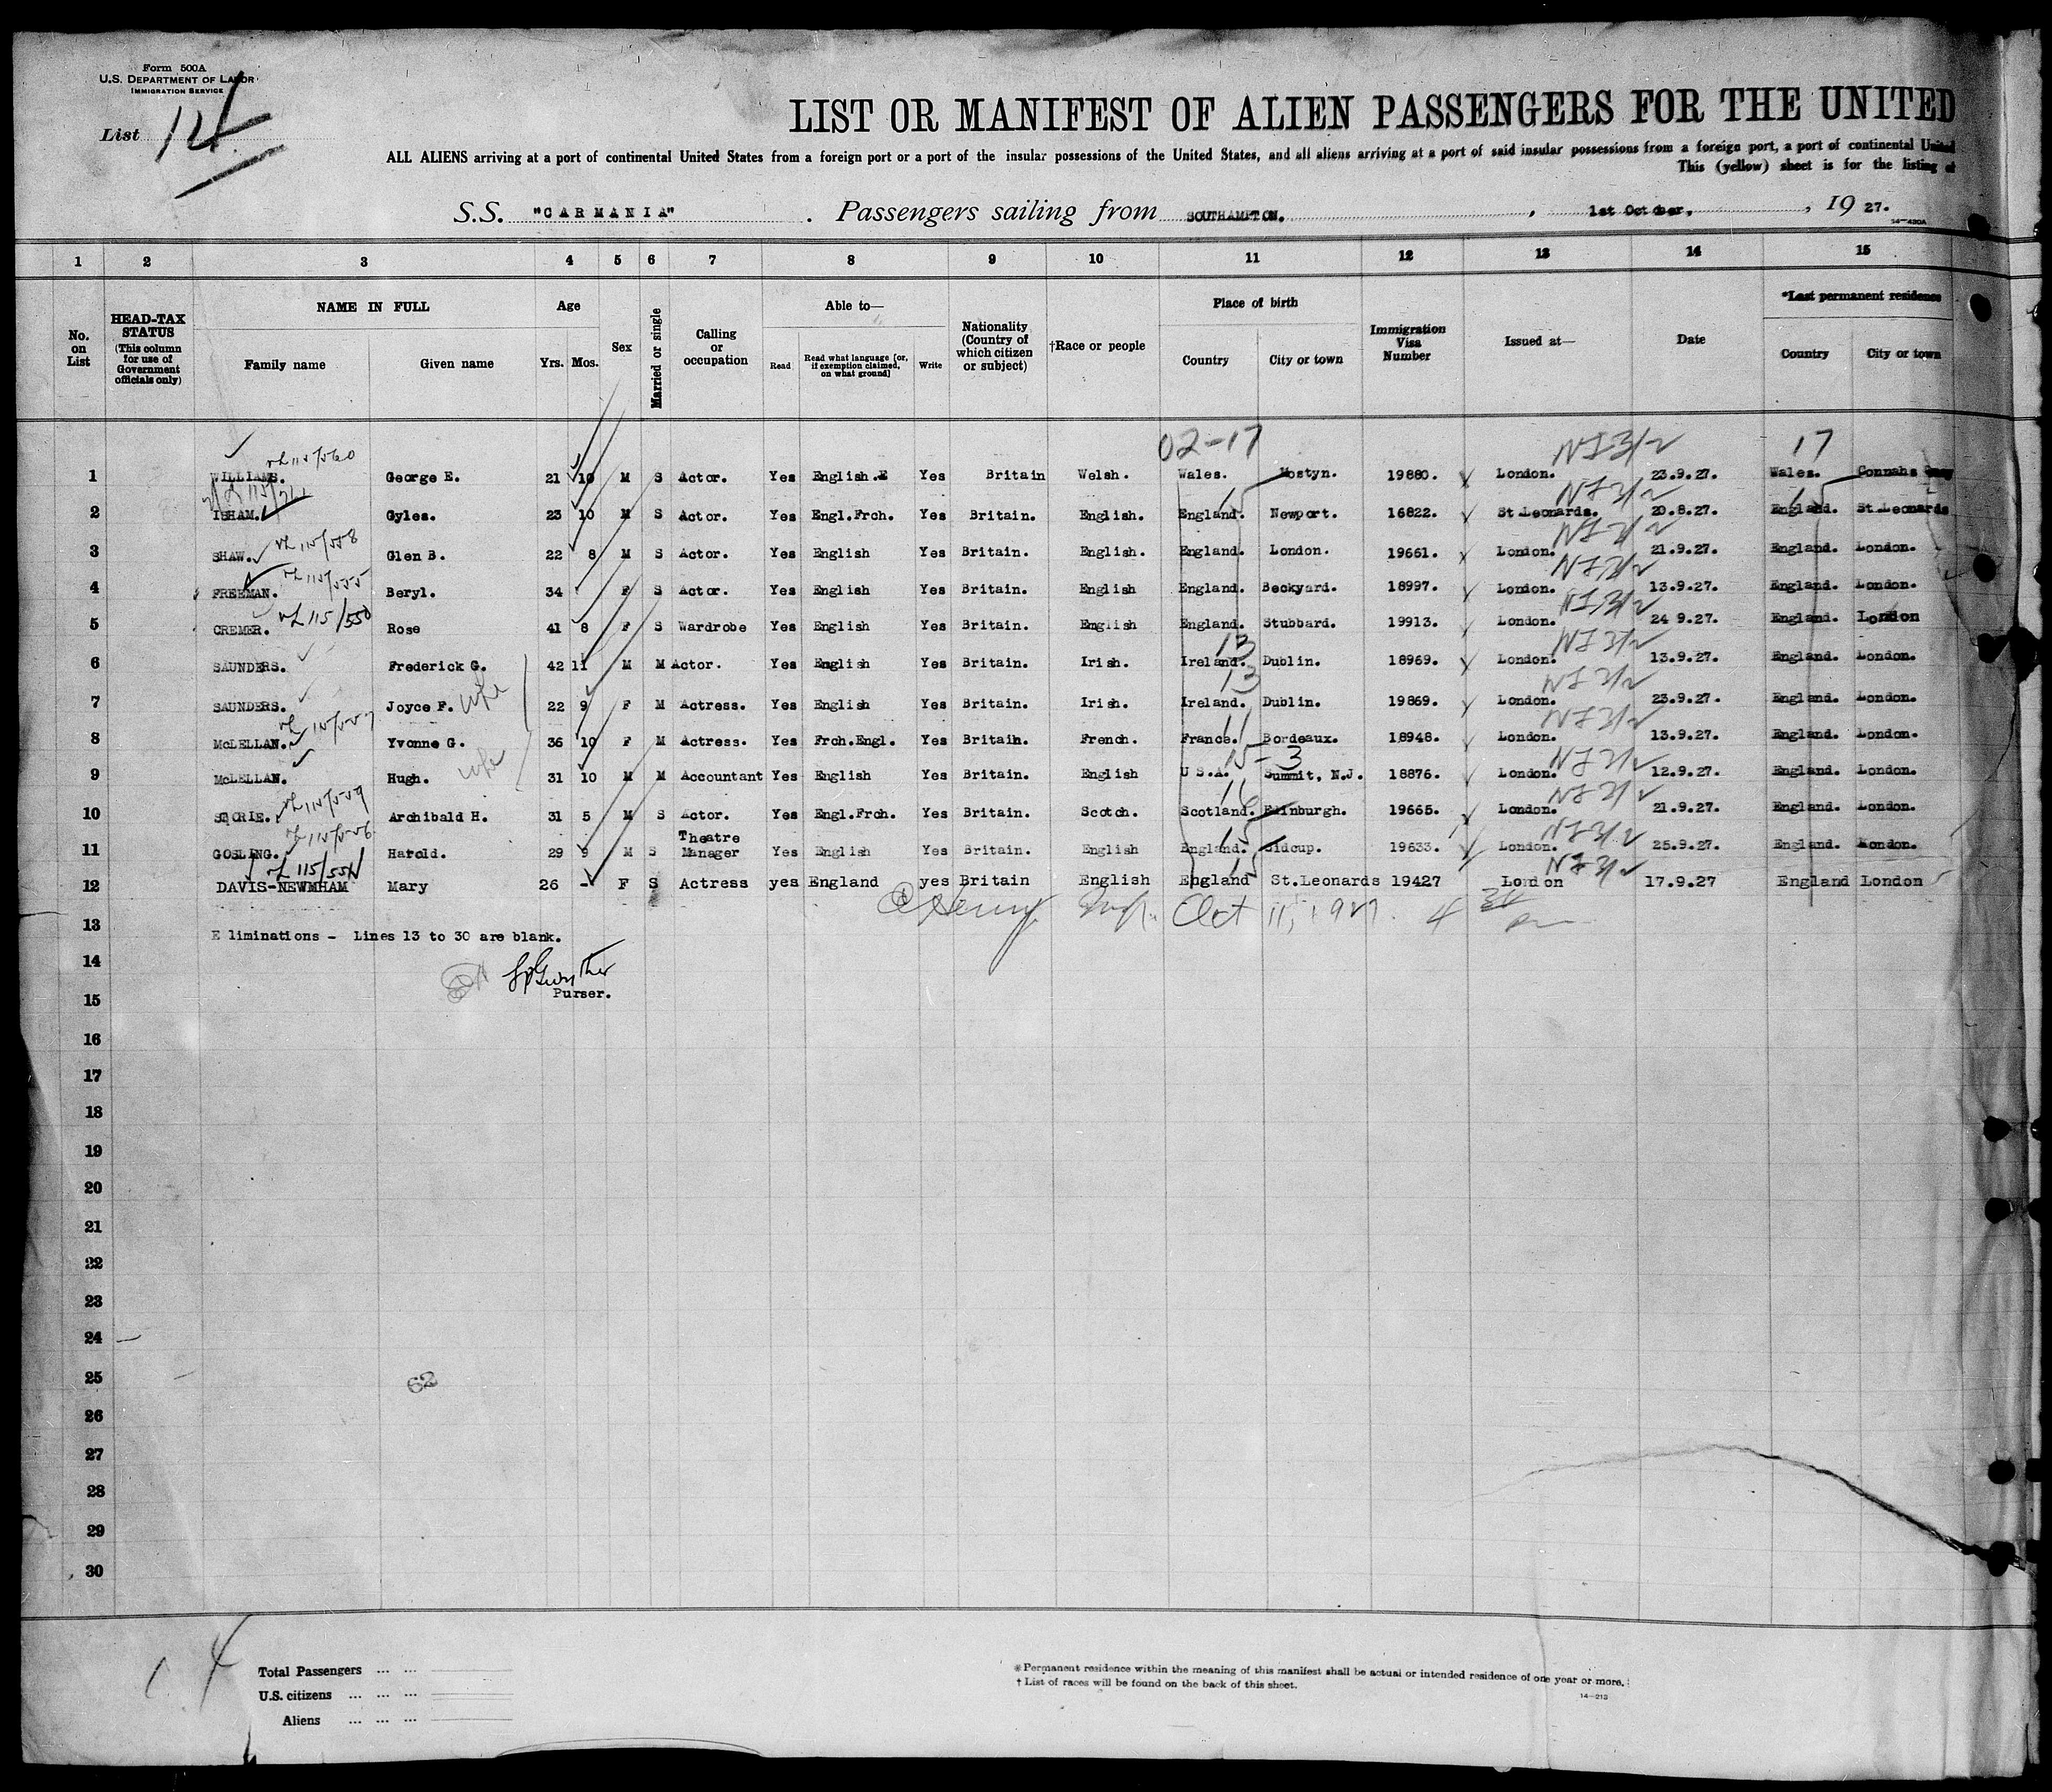 Form 500A
U.S. DEPARTMENT OF LABOR
IMMIGRATION SERVICE
List 14
LIST OR MANIFEST OF ALIEN PASSENGERS FOR THE UNITED
ALL ALIENS arriving at a port of continental United States from a foreign port or a port of the insular possessions of the United States, and all aliens arriving at a port of said insular possessions from a foreign port, a port of continental United
This (yellow) sheet is for the listing of
S.S. "CARMANIA" . Passengers sailing from SOUTHAMPTON. , 1st October, , 19 27.
14-430A
1 2 3 4 5 6 7 8 9 10 11 12 13 14 15
No. on List
HEAD-TAX STATUS (This column for use of Government officials only)
NAME IN FULL
Family name Given name
Age
Yrs. Mos.
Sex
Married or single
Calling or occupation
Able to—
Read Read what language [or, if exemption claimed, on what ground] Write
Nationality (Country of which citizen or subject)
†Race or people
Place of birth
Country City or town
Immigration Visa Number
Issued at—
Date
*Last permanent residence
Country City or town
02-17 17
1 WILLIAMS. George E. 21 10 M S Actor. Yes English.E Yes Britain Welsh. Wales. Mostyn. 19880. London. 23.9.27. Wales. Connahs Quay
2 ISHAM. Gyles. 23 10 M S Actor. Yes Engl.Frch. Yes Britain. English. England. Newport. 16822. St Leonards. 20.8.27. England. St.Leonards
3 SHAW. Glen B. 22 8 M S Actor. Yes English Yes Britain. English. England. London. 19661. London. 21.9.27. England. London.
4 FREEMAN. Beryl. 34 F S Actor. Yes English Yes Britain. English England. Beckyard. 18997. London. 13.9.27. England. London.
5 CREMER. Rose 41 8 F S Wardrobe Yes English Yes Britain. English England. Stubbard. 19913. London. 24 9.27. England. London
6 SAUNDERS. Frederick G. 42 11 M M Actor. Yes English Yes Britain. Irish. Ireland. Dublin. 18969. London. 13.9.27. England. London.
7 SAUNDERS. Joyce F. wife 22 9 F M Actress. Yes English Yes Britain. Irish. Ireland. Dublin. 19869. London. 23.9.27. England. London.
8 McLELLAN. Yvonne G. 36 10 F M Actress. Yes Frch.Engl. Yes Britain. French. France. Bordeaux. 18948. London. 13.9.27. England. London.
9 McLELLAN. Hugh. wife 31 10 M M Accountant Yes English Yes Britain. English U S.A. Summit, N.J. 18876. London. 12.9.27. England. London.
10 Archibald H. 31 5 M S Actor. Yes Engl.Frch. Yes Britain. Scotch. Scotland. Edinburgh. 19665. London. 21.9.27. England. London.
11 GOSLING. Harold. 29 9 M S Theatre Manager Yes English Yes Britain. English England. Sidcup. 19633. London. 25.9.27. England. London.
12 DAVIS-NEWMHAM Mary 26 - F S Actress yes England yes Britain English England St.Leonards 19427 London 17.9.27 England London
Oct 11, 1927. 4
13 E liminations - Lines 13 to 30 are blank.
14
Purser.
15
16
17
18
19
20
21
22
23
24
25
62
26
27
28
29
30
Total Passengers ... ...
U.S. citizens ... ... ...
Aliens ... ... ...
*Permanent residence within the meaning of this manifest shall be actual or intended residence of one year or more.
† List of races will be found on the back of this sheet.
14-213